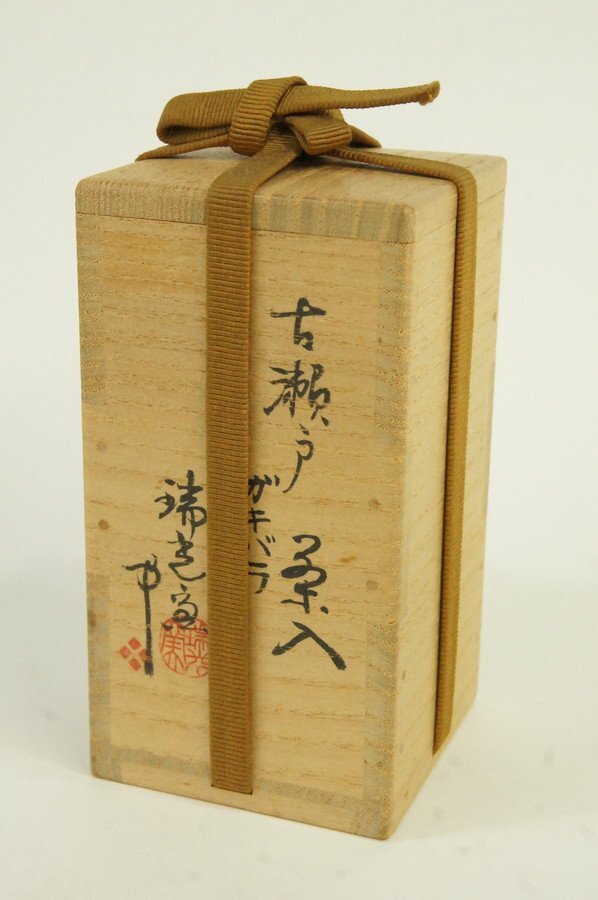 古瀬戸 茶入
ガキバラ
瑞光窯